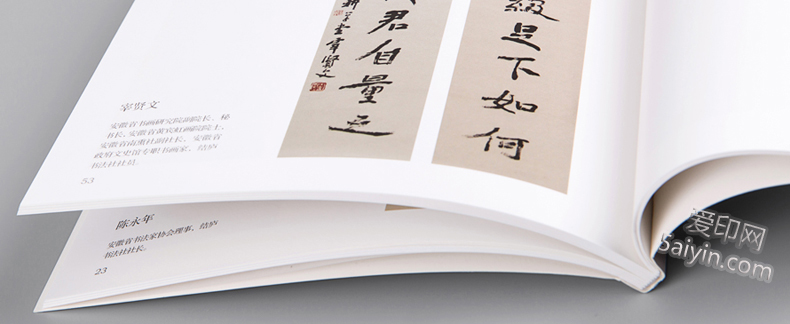 級足下如何
君自量
宰贤文
安徽省书画研究院副院长、秘
书长,安徽省黄宾虹画院院士,
安徽省 社副社长,安徽省
政府文史馆专职书画家、结庐
书法社社员。
53
陈永年
安徽省书法家协会理事,结庐
书法社社长。
23
爱印网
5aiyin.com